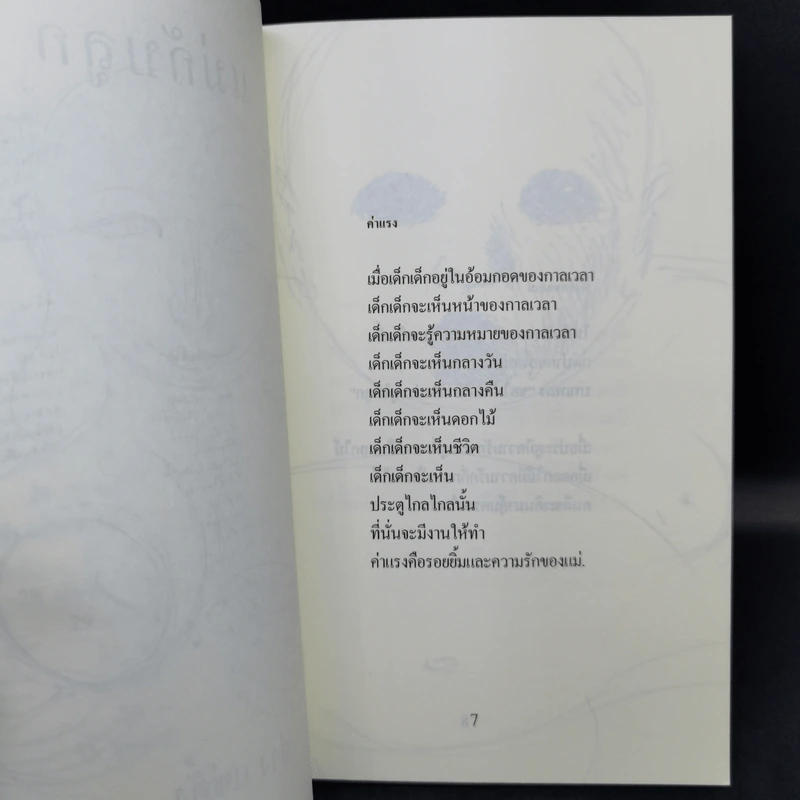 ค่าแรง
เมื่อเด็กเด็กอยู่ในอ้อมกอดของกาลเวลา
เด็กเด็กจะเห็นหน้าของกาลเวลา
เด็กเด็กจะรู้ความหมายของกาลเวลา
เด็กเด็กจะเห็นกลางวัน
เด็กเด็กจะเห็นกลางคืน
เด็กเด็กจะเห็นดอกไม้
เด็กเด็กจะเห็นชีวิต
เด็กเด็กจะเห็น
ประตูไกลไกลนั้น
ที่นั่นจะมีงานให้ทำ
ค่าแรงคือรอยยิ้มและความรักของแม่.
7